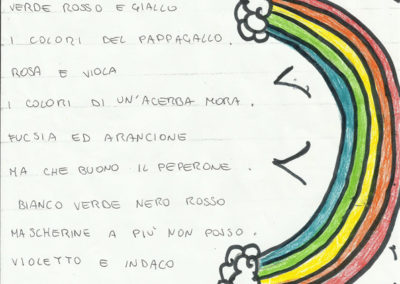 VERDE ROSSO E GIALLO
I COLORI DEL PAPPAGALLO.
ROSA E VIOLA
I COLORI DI UN'ACERBA MORA.
FUCSIA ED ARANCIONE
MA CHE BUONO IL PEPERONE.
BIANCO VERDE NERO ROSSO
MASCHERINE A PIÙ NON POSSO.
VIOLETTO E INDACO